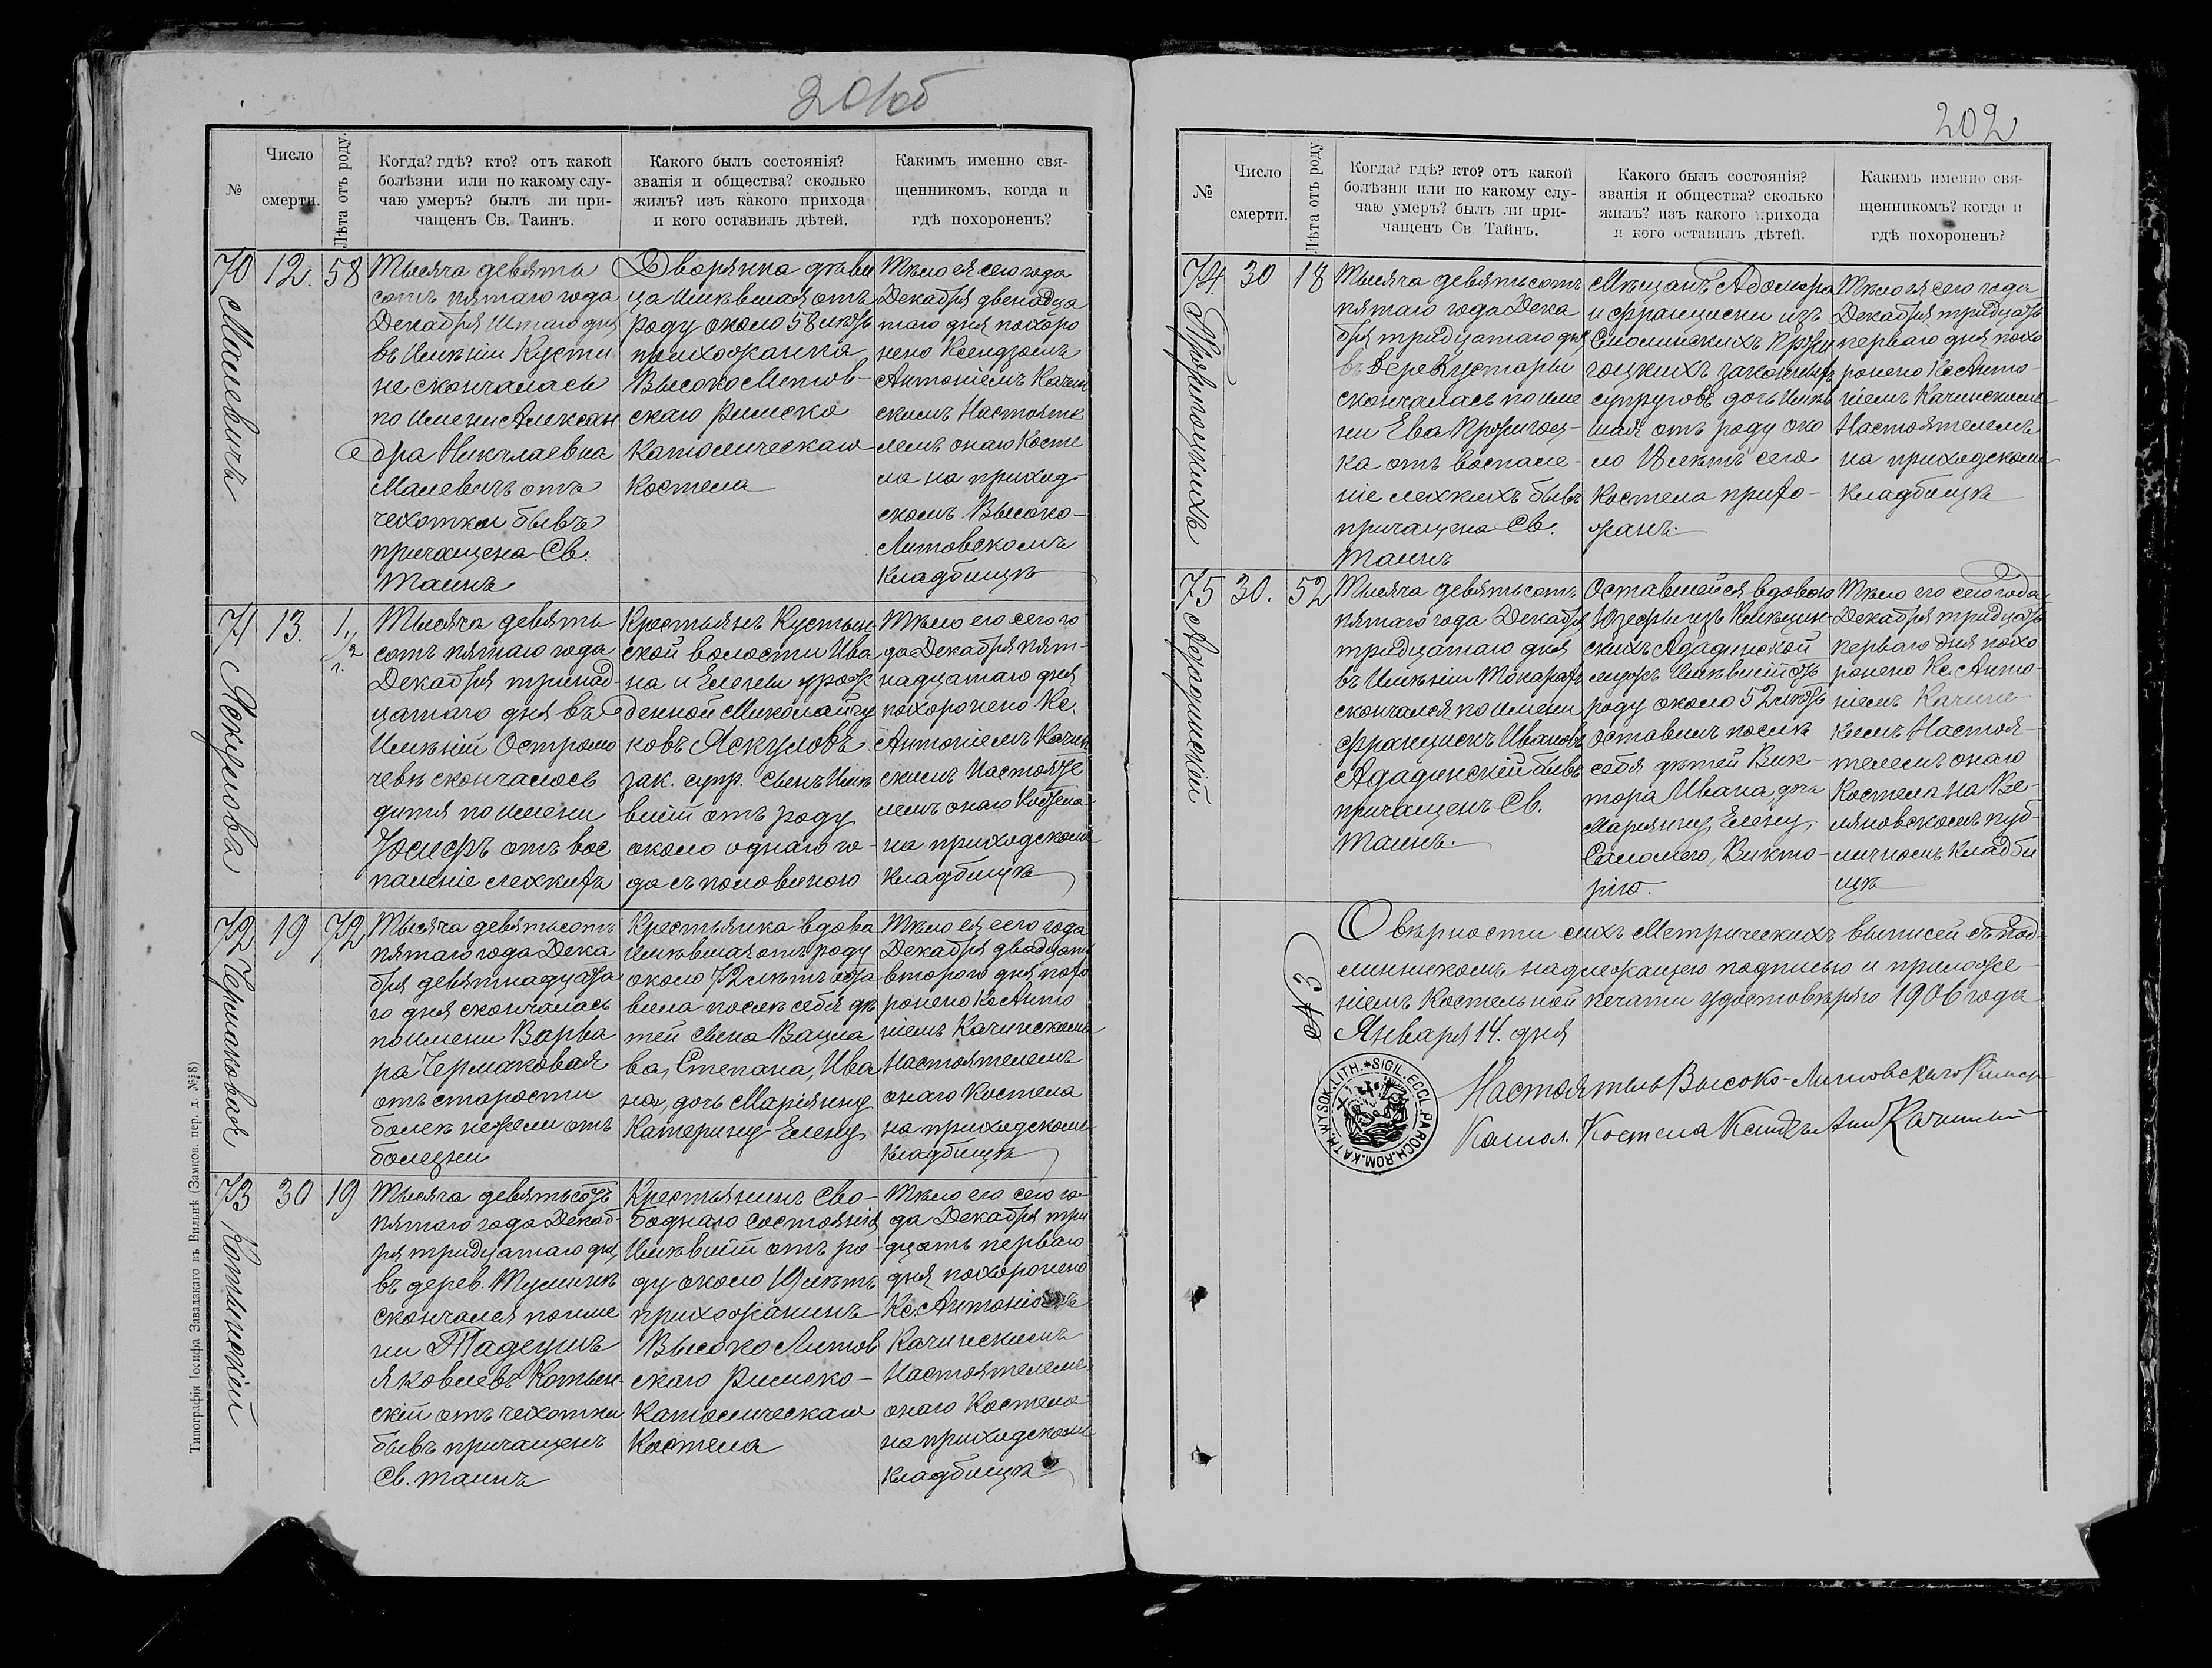 201об
№
Число
смерти.
Лѣта отъ роду.
Когда? гдѣ? кто? отъ какой
болѣзни или по какому слу-
чаю умеръ? былъ ли при-
чащенъ Св. Таинъ.
Какого былъ состоянія?
званія и общества? сколько
жилъ? изъ какого прихода
и кого оставилъ дѣтей.
Какимъ именно свя-
щенникомъ, когда и
гдѣ похороненъ?
70
Малевичъ
12.
58
Тысяча девять
сотъ пятаго года
Декабря
въ Имѣніи Кусти
не скончалась
по имени Алексан
дра Николаевна
Малевичъ отъ
чехотки бывъ
причащена Св.
Таинъ
Дворянка дѣви
ца имѣвшая отъ
роду около 58 лѣтъ
прихожанка
Высоко Литов-
скаго Римско
Католическаго
Костела
Тѣло ея сего года
Декабря двенадца
таго дня похоро
нено Ксендзомъ
Антоніемъ Качин
скимъ Настояте
лемъ онаго Косте
ла на приход-
скомъ Высоко-
Литовскомъ
кладбищѣ
71
Яскулова
13.
1 1/2 г.
Тысяча девять
сотъ пятаго года
Декабря тринад-
цатаго дня въ
Имѣніи Остромо
чевѣ скончалось
дитя по имени
Юсифъ отъ вос
паленіе лехкихъ
Крестьянъ Кустын-
ской волости Ива
на и Елены урож
денной Миколайчу
ковъ Яскуловъ
зак. супр. сынъ имѣ
вшій отъ роду
около однаго го-
да съ половиною
Тѣло его сего го
да Декабря пят-
надцатаго дня
похоронено Кс.
Антоніемъ Качин
скимъ Настояте
лемъ онаго Костела
на приходскомъ
кладбищѣ
72
Чермаковая
19
72
Тысяча девятьсотъ
пятаго года Дека
бря девятнадцата
го дня скончалась
по имени Варва
ра Чермаковая
отъ старости
болѣе нежели отъ
болезни
Крестьянка вдова
имѣвшая отъ роду
около 72 лѣтъ оста
вила послѣ себя дѣ
тей сына Вацла
ва, Степана, Ива
на, дочь Маріянну
Катерину Елену
Тѣло ея сего года
Декабря двадцать
второго дня похо
ронено Кс Анто
ніемъ Качинскомъ
Настоятелемъ
онаго Костела
на приходскомъ
кладбищѣ
73
Котынскій
30
19
Тысяча девятьсотъ
пятаго года Декаб-
ря тридцатаго дня
въ дерев.
скончался по име
ни Тадеушъ
Яковлевъ Котын-
скій отъ чехотки
бывъ причащенъ
Св. таинъ
Крестьянинъ сво-
боднаго состоянія
Имѣвшій отъ ро-
ду около 19 лѣтъ
прихожанинъ
Высоко Литов
скаго Римско-
Католическаго
Костела
Тѣло его сего го-
да Декабря три
дцать перваго
дня похоронено
Кс. Антоніемъ
Качинскимъ
Настоятелемъ
онаго Костела
на приходскомъ
кладбищѣ
Типографія Іосифа Завадзкаго въ Вильнѣ (Замков. пер. д. № 8)
202
№
Число
смерти.
Лѣта отъ роду.
Когда? гдѣ? кто? отъ какой
болѣзни или по какому слу-
чаю умеръ? былъ ли при-
чащенъ Св. Тайнъ.
Какого былъ состоянія?
званія и общества? сколько
жилъ? изъ какого прихода
и кого оставилъ дѣтей.
Какимъ именно свя-
щенникомъ? когда и
гдѣ похороненъ?
74.
30
18
Тысяча девятьсотъ
пятаго года Дека
бря тридцатаго дня
въ Дере
скончалась по име
ни Ева
ка отъ воспале-
ніе лехкихъ бывъ
причащена Св.
Таинъ
Мѣщанъ
и Франциски изъ
законныхъ
супруговъ дочь Имѣв
шая отъ роду око
ло 18 лѣтъ сего
Костела прихо-
жанъ.
Тѣло ея сего года
Декабря тридцать
перваго дня похо
ронено Кс Анто-
ніемъ Качинскимъ
Настоятелемъ
на приходскомъ
кладбищѣ
75
Ададинскій
30.
52
Тысяча девятьсотъ
пятаго года Декабря
тридцатаго дня
въ Имѣніи Токарахъ
скончался по имени
Францискъ Ивановъ
Ададинскій бывъ
причащенъ Св.
Таинъ.
Оставшейся вдовою
Юзефы изъ
скихъ Ададинской
мужъ Имѣвшій отъ
роду около 52 лѣтъ
оставилъ послѣ
себя дѣтей Вик-
тора Ивана дочь
Маріянну, Елену,
Саломею, Викто-
рію.
Тѣло его сего года
Декабря тридцать
перваго дня похо
ронено Кс. Анто-
ніемъ Качин-
скимъ Настоя-
телемъ онаго
Костела на Вѣ-
ляновскомъ пуб-
личномъ кладби
щѣ
№ 3
О вѣрности сихъ Метрическихъ выписей съ под-
линникомъ надлежащею подписью и приложе-
ніемъ Костельной печати удостовѣряю 1906 года
Января 14. дня
Настоятель Высоко-Литовскаго Римск
Катол. Костела Ксендзъ Ант Качинскій
*SIGIL.ECCL.PAROCH.ROM.KATH.WYSOK.LITH.